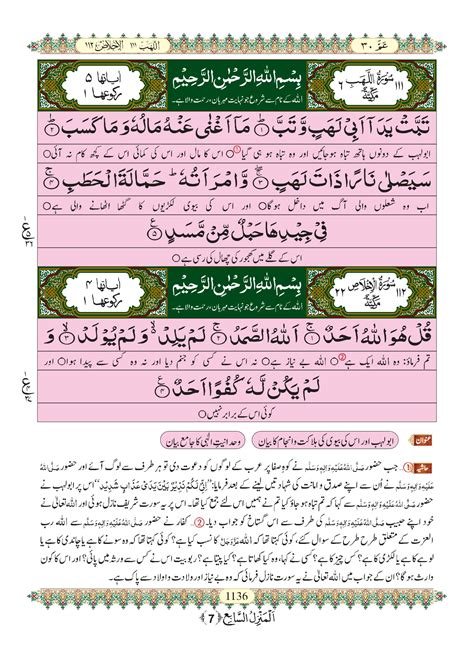 عَمَّ ٣٠
اللهب ١١١ الاخلاص ١١٢
١١١ سُوْرَةُ اللَّهَبِ مَكِّيَّةٌ ٦
بِسْمِ اللّٰهِ الرَّحْمٰنِ الرَّحِيْمِ
اللہ کے نام سے شروع جو نہایت مہربان، رحمت والا ہے۔
اٰیاتها ٥
رکوعها ١
تَبَّتْ یَدَاۤ اَبِیْ لَهَبٍ وَّ تَبَّ ۝١ مَاۤ اَغْنٰى عَنْهُ مَالُهٗ وَ مَا كَسَبَ ۝٢
ابولہب کے دونوں ہاتھ تباہ ہوجائیں اور وہ تباہ ہو ہی گیا ① اس کا مال اور اس کی کمائی اس کے کچھ کام نہ آئی
سَیَصْلٰى نَارًا ذَاتَ لَهَبٍ ۝٣ وَّ امْرَاَتُهٗ حَمَّالَةَ الْحَطَبِ ۝٤
اب وہ شعلوں والی آگ میں داخل ہوگا اور اس کی بیوی لکڑیوں کا گٹھا اٹھانے والی ہے
فِیْ جِیْدِهَا حَبْلٌ مِّنْ مَّسَدٍ ۝٥
اس کے گلے میں کھجور کی چھال کی رسی ہے
١١٢ سُوْرَةُ الْاِخْلَاصِ مَكِّيَّةٌ ٢٢
بِسْمِ اللّٰهِ الرَّحْمٰنِ الرَّحِيْمِ
اللہ کے نام سے شروع جو نہایت مہربان، رحمت والا ہے۔
اٰیاتها ٤
رکوعها ١
قُلْ هُوَ اللّٰهُ اَحَدٌ ۝١ اَللّٰهُ الصَّمَدُ ۝٢ لَمْ یَلِدْ وَ لَمْ یُوْلَدْ ۝٣ وَ
تم فرماؤ: وہ اللہ ایک ہے ② اللہ بے نیاز ہے نہ اس نے کسی کو جنم دیا اور نہ وہ کسی سے پیدا ہوا اور
لَمْ یَكُنْ لَّهٗ كُفُوًا اَحَدٌ ۝٤
کوئی اس کے برابر نہیں
عنوان ابولہب اور اس کی بیوی کی ہلاکت و انجام کا بیان وحدانیت الٰہی کا جامع بیان
حاشیہ ①۔ جب حضور صَلَّى اللهُ عَلَيْهِ وَاٰلِهٖ وَسَلَّمَ نے کوہِ صفا پر عرب کے لوگوں کو دعوت دی تو ہر طرف سے لوگ آئے اور حضور صَلَّى اللهُ
عَلَيْهِ وَاٰلِهٖ وَسَلَّمَ نے ان سے اپنے صدق و امانت کی شہادتیں لینے کے بعد فرمایا: "اِنِّیْ لَكُمْ نَذِیْرٌ بَیْنَ یَدَیْ عَذَابٍ شَدِیْدٍ" اس پر ابولہب نے
حضور صَلَّى اللهُ عَلَيْهِ وَاٰلِهٖ وَسَلَّمَ سے کہا کہ تم تباہ ہو جاؤ کیا تم نے ہمیں اس لئے جمع کیا تھا۔ اس پر یہ سورت شریف نازل ہوئی اور اللہ تعالیٰ نے
خود اپنے حبیب صَلَّى اللهُ عَلَيْهِ وَاٰلِهٖ وَسَلَّمَ کی طرف سے اس گستاخ کو جواب دیا۔ ②۔ کفار نے حضور صَلَّى اللهُ عَلَيْهِ وَاٰلِهٖ وَسَلَّمَ سے اللہ رب
العزت کے متعلق طرح طرح کے سوال کئے، کوئی کہتا تھا کہ اللہ کا نسب کیا ہے؟ کوئی کہتا تھا کہ وہ سونے کا ہے یا چاندی کا ہے یا
لوہے کا ہے یا لکڑی کا ہے؟ کس چیز کا ہے؟ کسی نے کہا، وہ کیا کھاتا ہے؟ کیا پیتا ہے؟ ربوبیت اس نے کس سے ورثہ میں پائی؟ اور اس کا کون
وارث ہوگا؟ ان کے جواب میں اللہ تعالیٰ نے یہ سورت نازل فرمائی کہ وہ بے نیاز اور ولادت و اولاد سے پاک ہے۔
1136
اَلْمَنْزِلُ السَّابِع ﴿7﴾